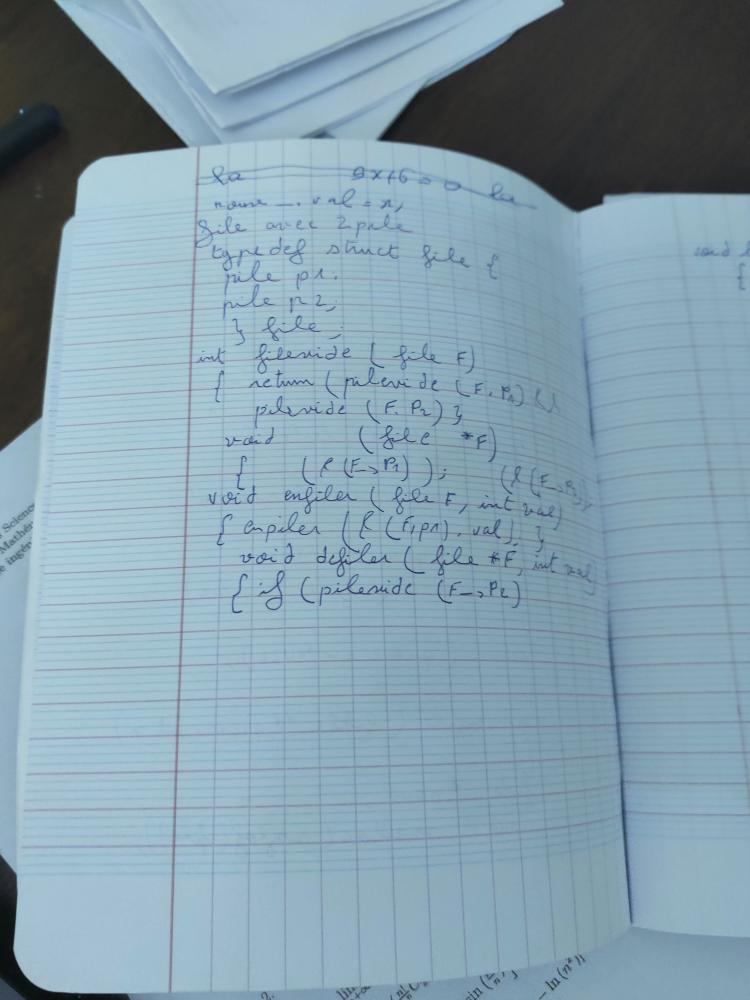 ax+b = 0
val = x;
file avec 2 pile
typedef struct file {
pile p1;
pile p2;
} file;
int filevide ( file F)
{ return (pilevide (F.P1) &&
pilevide (F.P2) }
void ( file *F)
{ (&(F->P1)); (&(F->P2));
void enfiler ( file F, int val)
{ empiler (& (F.p1), val); }
void defiler ( file *F, int val)
{ if (pilevide (F->P2)
void
{
Science
Mathé
ingén
ln (n²))